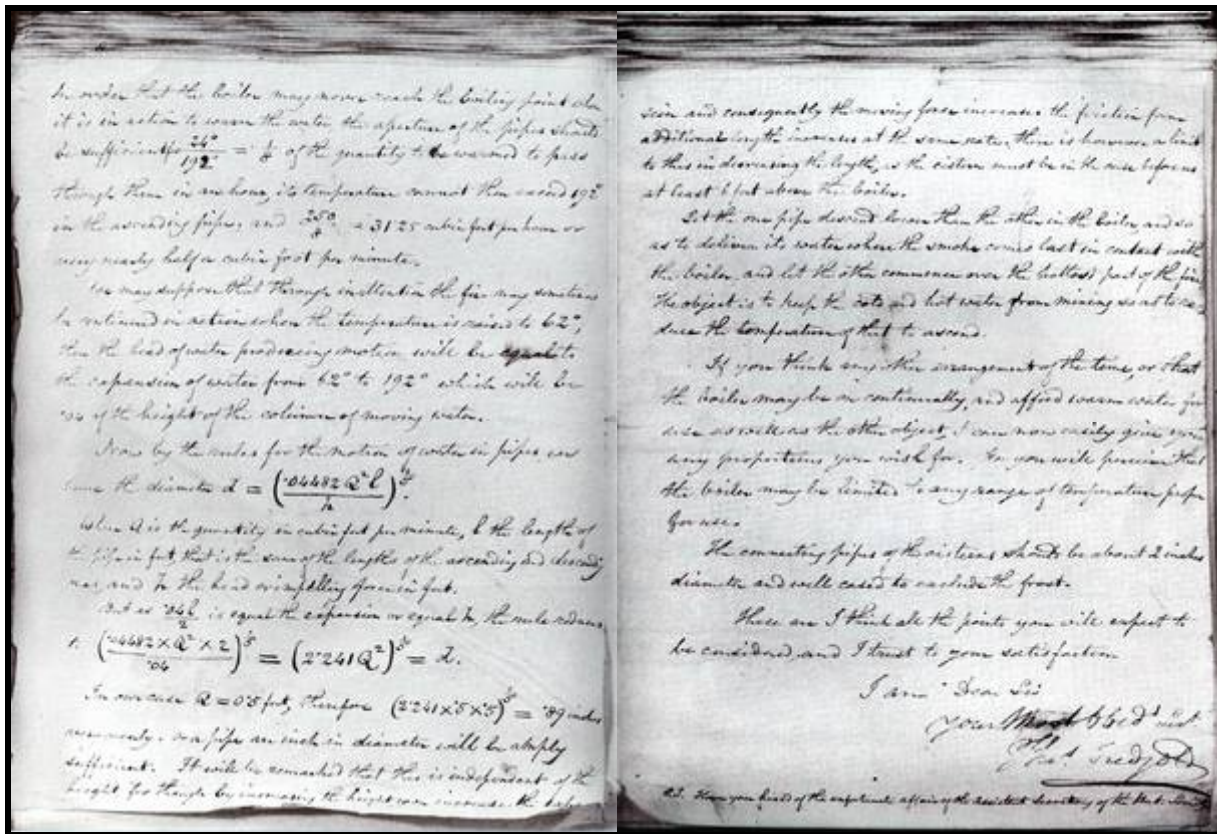 In order that the boiler may never reach the boiling point when
it is in action to warm the water the aperture of the pipes should
be sufficient for 24°/192° = 1/8 of the quantity to be warmed to pass
through them in an hour, its temperature cannot then exceed 192°
in the ascending pipe. and 250/8 = 31·25 cubic feet per hour or
very nearly half a cubic foot per minute.
We may suppose that through inattention the fire may sometimes
be continued in action when the temperature is raised to 62°,
then the head of water producing motion will be equal to
the expansion of water from 62° to 192° which will be
·04 of the height of the column of moving water.
Now by the rules for the motion of water in pipes, we
have the diameter d = (·04482 Q² l / h)^1/5.
when Q is the quantity in cubic feet per minute, l the length of
the pipe in feet, that is the sum of the lengths of the ascending and descending
ones, and h the head or impelling force in feet.
But as ·04 l / 2 is equal the expansion or equal h, the rule reduces
to (·04482 × Q² × 2 / ·04)^1/5 = (2·241 Q²)^1/5 = d.
In our case Q = 0·5 feet, therefore (2·241 × ·5 × ·5)^1/5 = ·89 inches
very nearly. or a pipe an inch in diameter will be amply
sufficient. It will be remarked that this is independent of the
height for though by increasing the height we increase the
and consequently the moving force increases the friction from
additional length increases at the same rate, there is however a limit
to this in decreasing the length, as the cistern must be in the case before us
at least 6 feet above the boiler.
Let the one pipe descend lower than the other in the boiler, and so
as to deliver its water where the smoke comes last in contact with
the boiler, and let the other commence over the hottest part of the fire
The object is to keep the cold and hot water from mixing so as to re-
duce the temperature of that to ascend.
If you think any other arrangement of the time, or that
the boiler may be in continually, and afford warm water for
use as well as the other object, I can now easily give you
any proportions you wish for. For you will perceive that
the boiler may be limited to any range of temperature proper
for use.
The connecting pipes of the cisterns should be about 2 inches
diameter and well cased to exclude the frost.
These are I think all the points you will expect to
be considered, and I trust to your satisfaction.
I am Dear Sir
Your Most Obed^t Serv^t
Tho^s Tredgold
P.S. Have you heard of the unfortunate affair of the Assistant Secretary of the